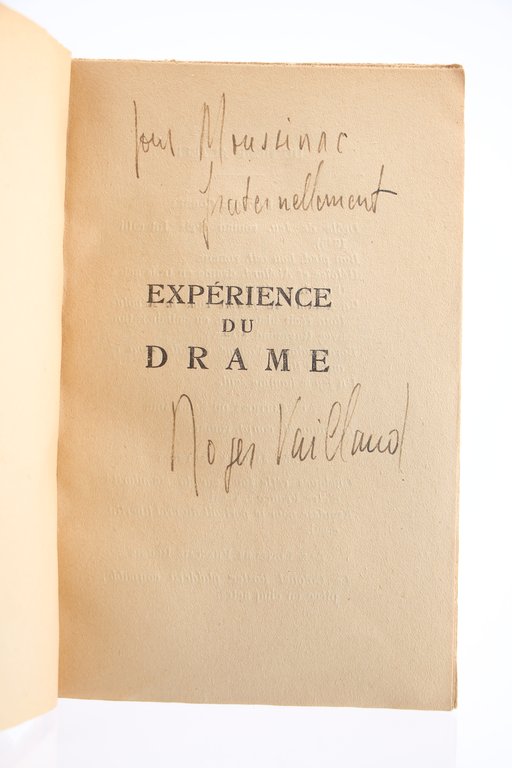 pour Moussinac
fraternellement
EXPÉRIENCE
DU
DRAME
Roger Vailland